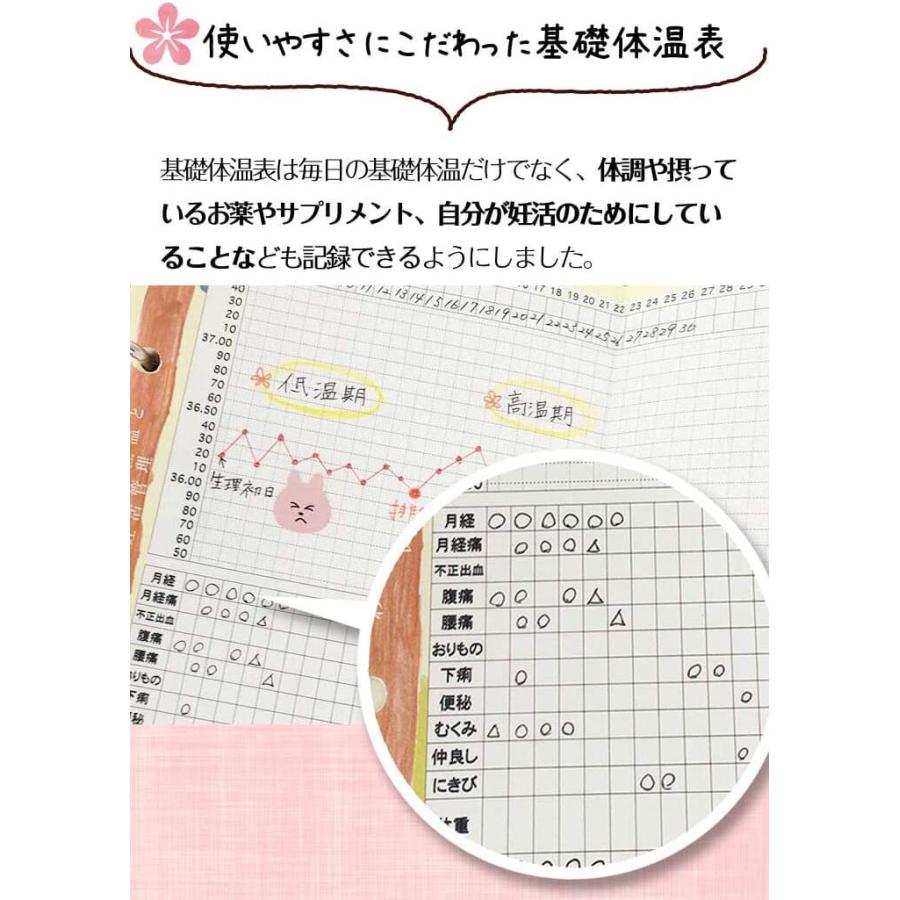 使いやすさにこだわった基礎体温表
基礎体温表は毎日の基礎体温だけでなく、体調や摂って
いるお薬やサプリメント、自分が妊活のためにしてい
ることなども記録できるようにしました。
17 18 19 20 21 22 23 24 25 26 27 28 29 30
11 12 13 14 15 16 17 18 19 20 21 22 23 24 25 26 27 28 29 30
40
30
20
10
37.00
90
80
70
60
36.50
40
30
20
10
36.00
90
80
70
60
50
低温期
高温期
生理初日
月経
月経痛
不正出血
腹痛
腰痛
おりもの
下痢
便秘
月経
月経痛
不正出血
腹痛
腰痛
おりもの
下痢
便秘
むくみ
仲良し
にきび
体重